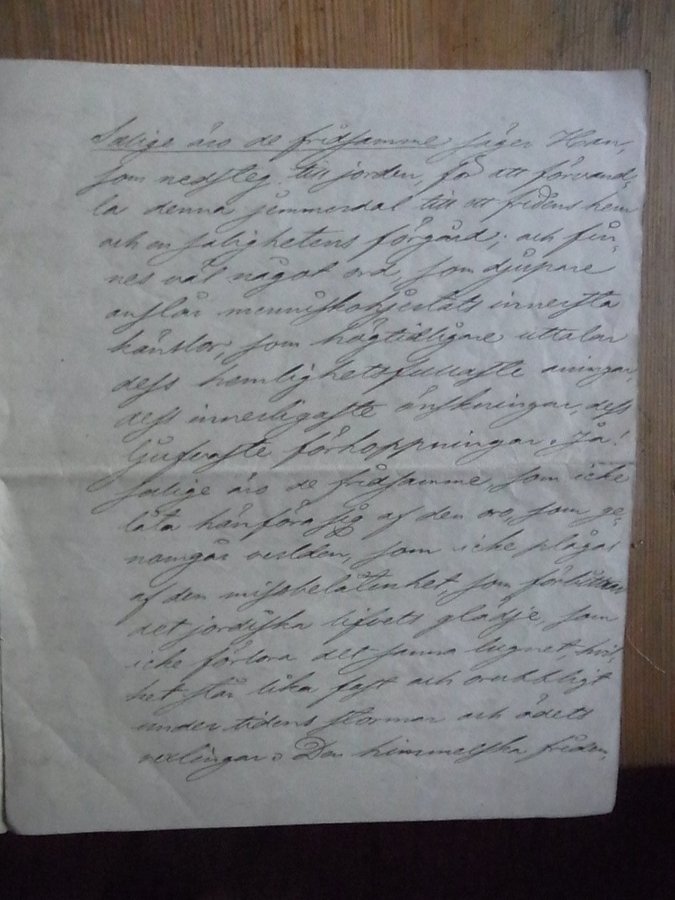 Salige äro de fridsamme, säger Han,
som nedsteg till jorden, för att förvand-
la denna jemmerdal till ett fridens hem
och en salighetens förgård; och fin-
nes väl något ord, som djupare
anslår menniskohjertats innersta
känslor, som högtidligare uttalar
dess hemlighetsfullaste aningar,
dess innerligaste önskningar, dess
ljufvaste förhoppningar. Ja!
Salige äro de fridsamme, som icke
låta hänföra sig af den oro, som ge-
nomgår verlden, som icke plågas
af den missbelåtenhet, som förbittrar
det jordiska lifvets glädje, som
icke förlora det sanna lugnet, hvil-
ket står lika fast och orubbligt
under tidens stormar och ödets
vexlingar. Den himmelska friden,